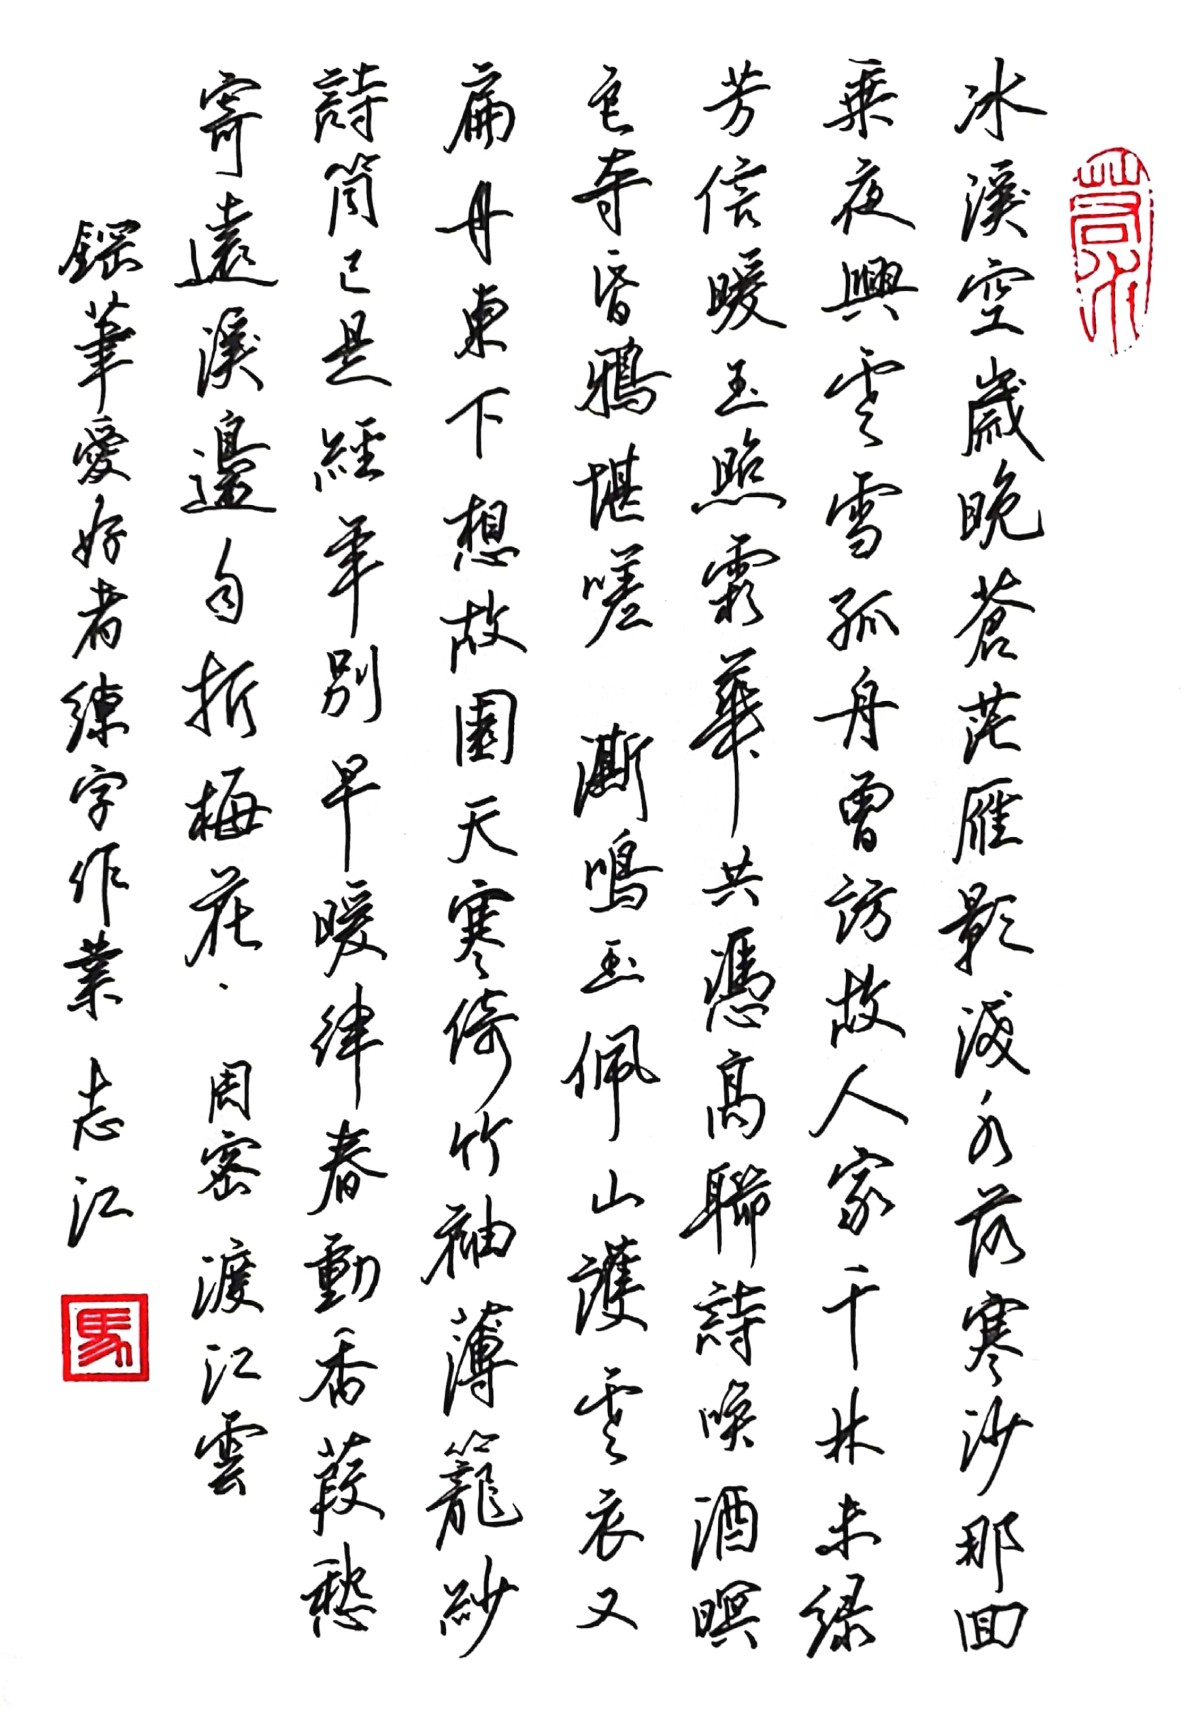 冰溪空歲晚蒼茫雁影淺水落寒沙那回
乘夜興雲雪孤舟曾訪故人家千林未綠
芳信暖玉照霜華共憑高聯詩喚酒暝
色奪昏鴉堪嗟 澌鳴玉佩山護雲衣又
扁舟東下想故園天寒倚竹袖薄籠紗
詩筒已是經年別早暖律春動香葭愁
寄遠溪邊自折梅花 周密 渡江雲
鋼筆愛好者練字作業 志江
馬